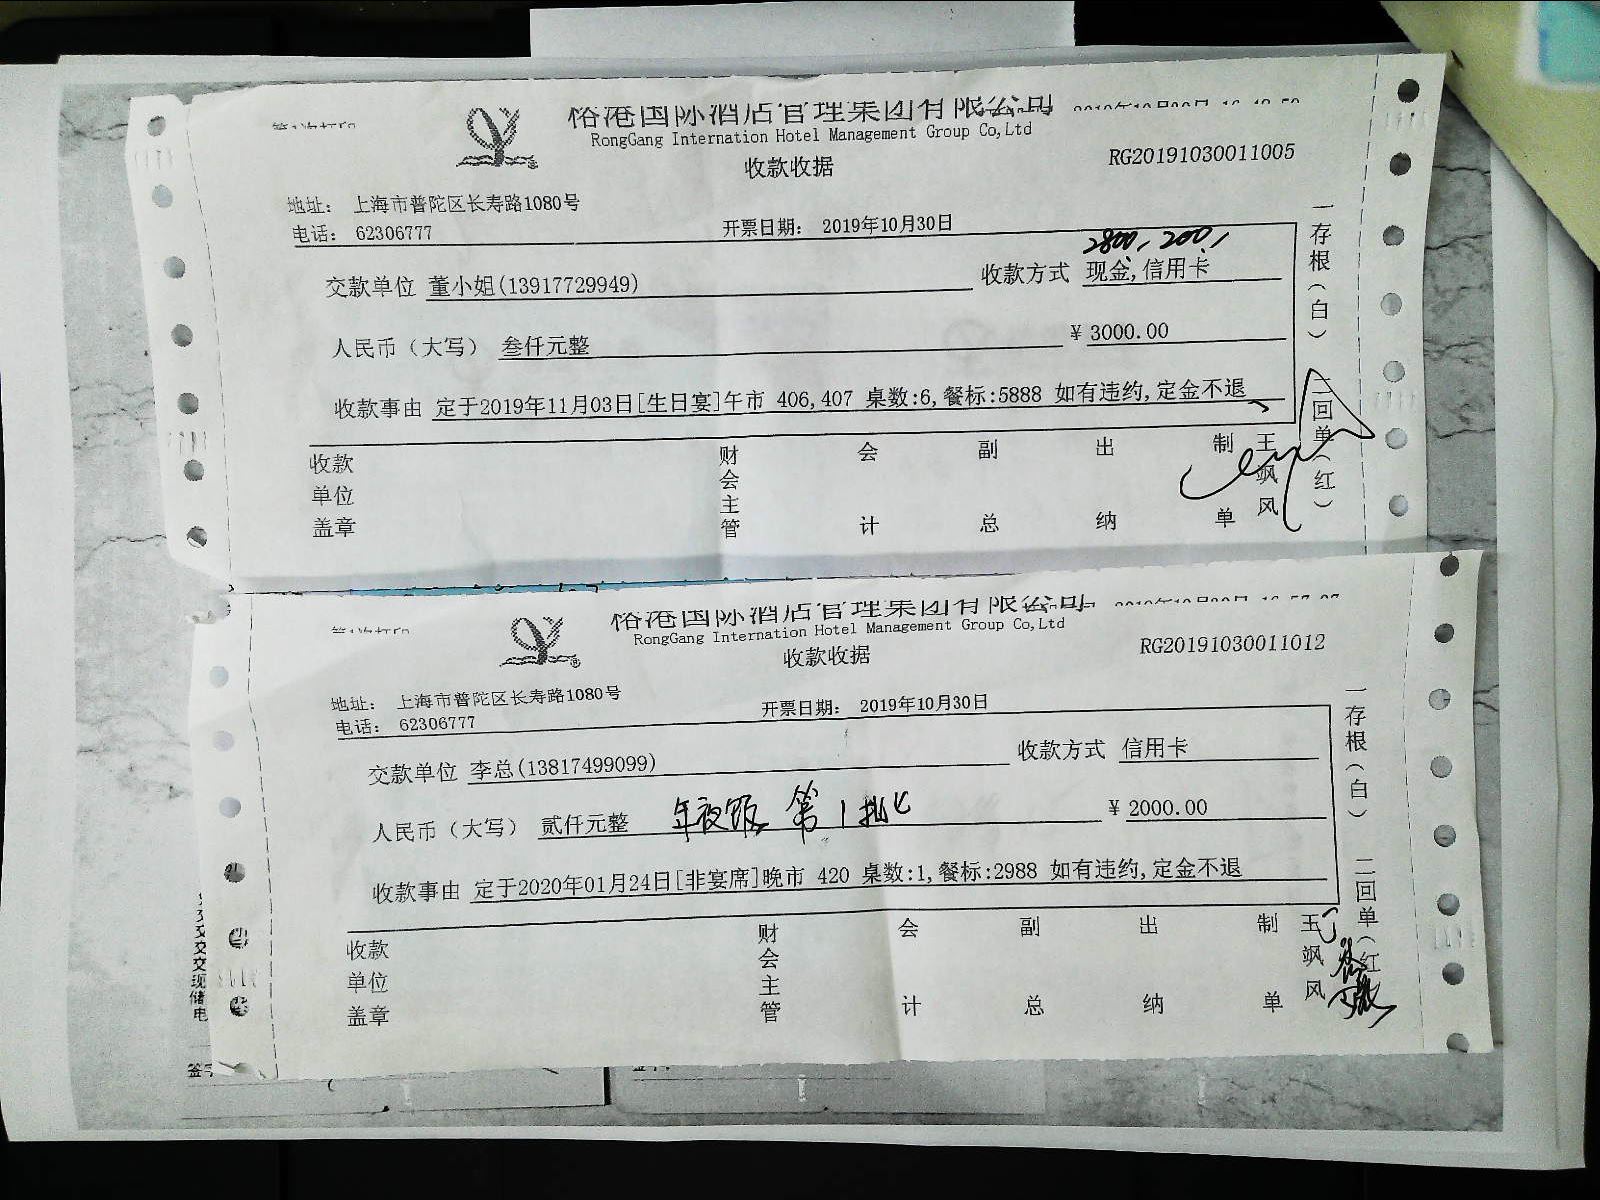 港国际酒店管理集团有限公司
RongGang Internation Hotel Management Group Co,Ltd
收款收据
RG20191030011005
地址： 上海市普陀区长寿路1080号
电话： 62306777
开票日期： 2019年10月30日
2800, 200,
交款单位 董小姐(13917729949)
收款方式 现金,信用卡
人民币（大写） 叁仟元整
¥ 3000.00
收款事由 定于2019年11月03日[生日宴]午市 406,407 桌数:6,餐标:5888 如有违约,定金不退
收款单位盖章
财会主管
会计
副总
出纳
制单
王飒风
一存根（白）
二回单（红）
港国际酒店管理集团有限公司
RongGang Internation Hotel Management Group Co,Ltd
收款收据
RG20191030011012
地址： 上海市普陀区长寿路1080号
电话： 62306777
开票日期： 2019年10月30日
交款单位 李总(13817499099)
收款方式 信用卡
人民币（大写） 贰仟元整
年夜饭 第1批
¥ 2000.00
收款事由 定于2020年01月24日[非宴席]晚市 420 桌数:1,餐标:2988 如有违约,定金不退
收款单位盖章
财会主管
会计
副总
出纳
制单
王飒风
一存根（白）
二回单（红）